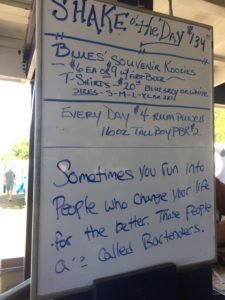 SHAKE o' the DAY $134
BLUES' SOUVENIR KOOZIES
$6 EA OR $9 W/ FREE BEER
T-SHIRTS - $20 BLUE GREY OR WHITE
SIZES - S-M-L-XL
EVERY DAY $4 RUM PUNCH
16oz TALL BOY PBR $2
Sometimes you run into
People who change your life
for the better. Those People
are Called Bartenders.